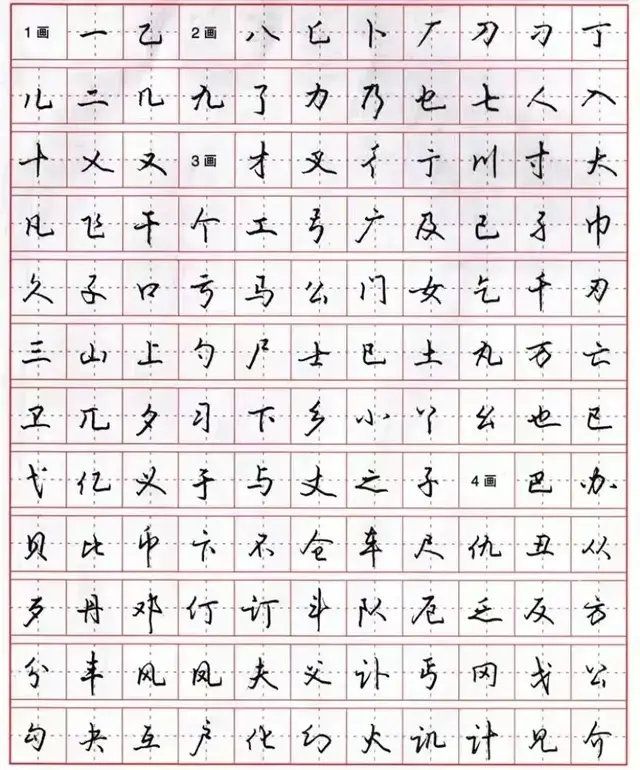 1画 一 乙 2画 八 匕 卜 厂 刀 刁 丁
儿 二 几 九 了 力 乃 乜 七 人 入
十 乂 又 3画 才 叉 彳 亍 川 寸 大
凡 飞 干 个 工 弓 广 及 己 孑 巾
久 孓 口 亏 马 么 门 女 乞 千 刃
三 山 上 勺 尸 士 巳 土 丸 万 亡
卫 兀 夕 习 下 乡 小 丫 幺 也 已
弋 亿 义 于 与 丈 之 子 4画 巴 办
贝 比 币 卞 不 仓 车 尺 仇 丑 从
歹 丹 邓 仃 订 斗 队 厄 乏 反 方
分 丰 风 凤 夫 父 讣 丐 冈 戈 公
勾 夬 互 户 化 幻 火 讥 计 见 介